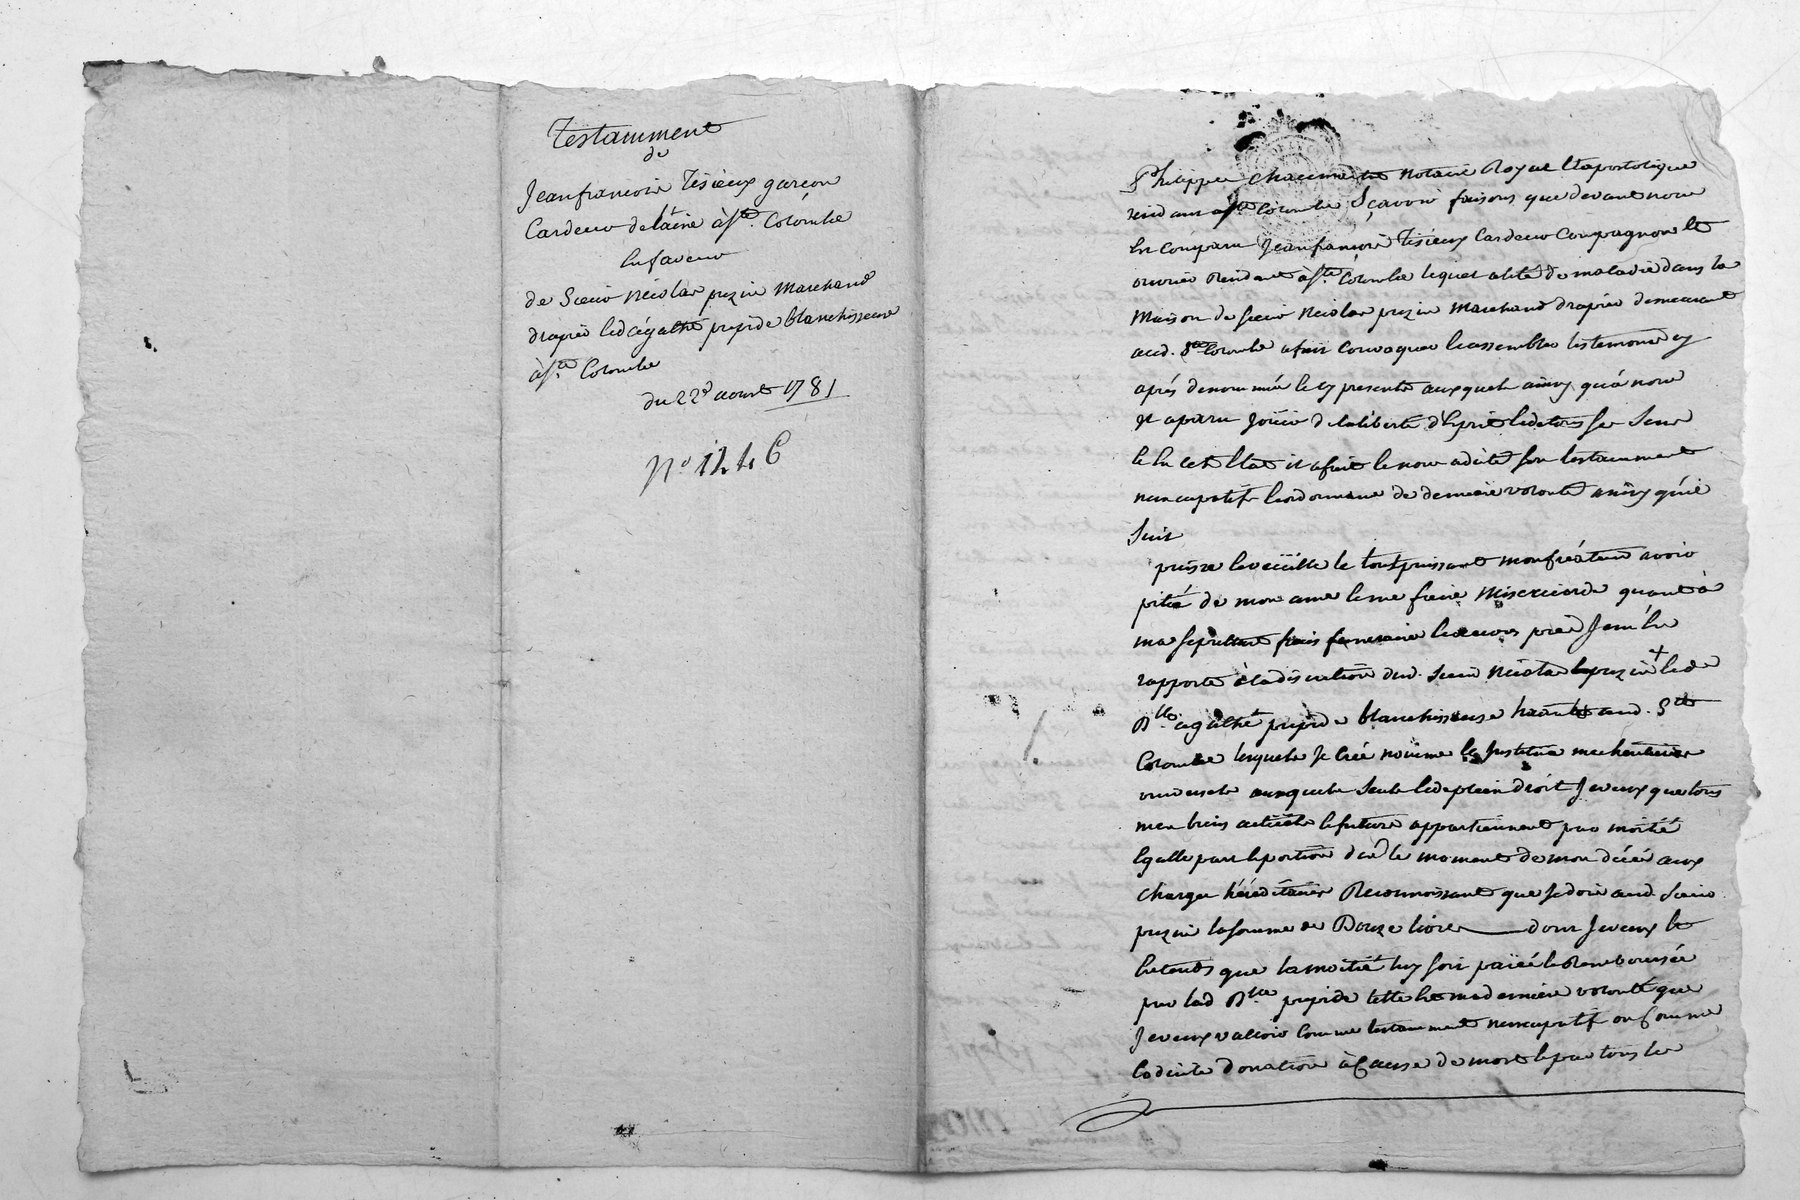 Testamment
de
Jean françois Tésieux garçon
Cardeur de laine à Ste. Colombe
en faveur
de Sieur Nicolas puzin Marchand
drapié et d'agathe prepide blanchisseuse
à Ste. Colombe
du 22e aoust 1781
No. 1446
Philippe notaire Royal et apostolique
résidant a Ste Colombe Sçavoir faisons que devant nous
en Comparu Jean françois Tésieux Cardeur Compagnon et
ouvrié Résidant à Ste. Colombe lequel alité de maladie dans la
Maison de sieur Nicolas puzin Marchand drapiér demeurant
aud. Ste Colombe a fait convoquer et assembler les temoins cy
après dénommés et cy presents auxquels ainsy qu'à nous
Il a paru Jouir de la liberté d'Esprit et de tous ses Sens
et en cet Etat il a fait et nous a dicté son testamment
nuncupatif et ordonnance de derniere volonté ainsy qu'il
Suit
puisse le veüille le tout puissant mon Créateur avoir
pitié de mon ame et me faire Misericorde quant à
ma sepulture frais funeraire et œuvres pies Je m'en
rapporte à la discrétion dud. Sieur Nicolas puzin + et de
Dlle. agathe prepide blanchisseuse aud. Ste
Colombe lesquels Je créé nomme et Institue mes heritiers
universels auxquels Seuls et de plein droit Je veux que tous
mes biens actuels et futurs appartiennent par moitié
Egalle part et portion dès le moment de mon décés aux
Charges héréditaires Reconnoissant que Je dois aud. Sieur
puzin la somme de Douze livres dont Je veux et
Entends que la moitié luy soit païée et Remboursée
par lad Dlle prepide telle est ma derniere volonté que
Je veux valloir Comme testamment nuncupatif ou Comme
Codicile donation à Cause de mort et par tous les